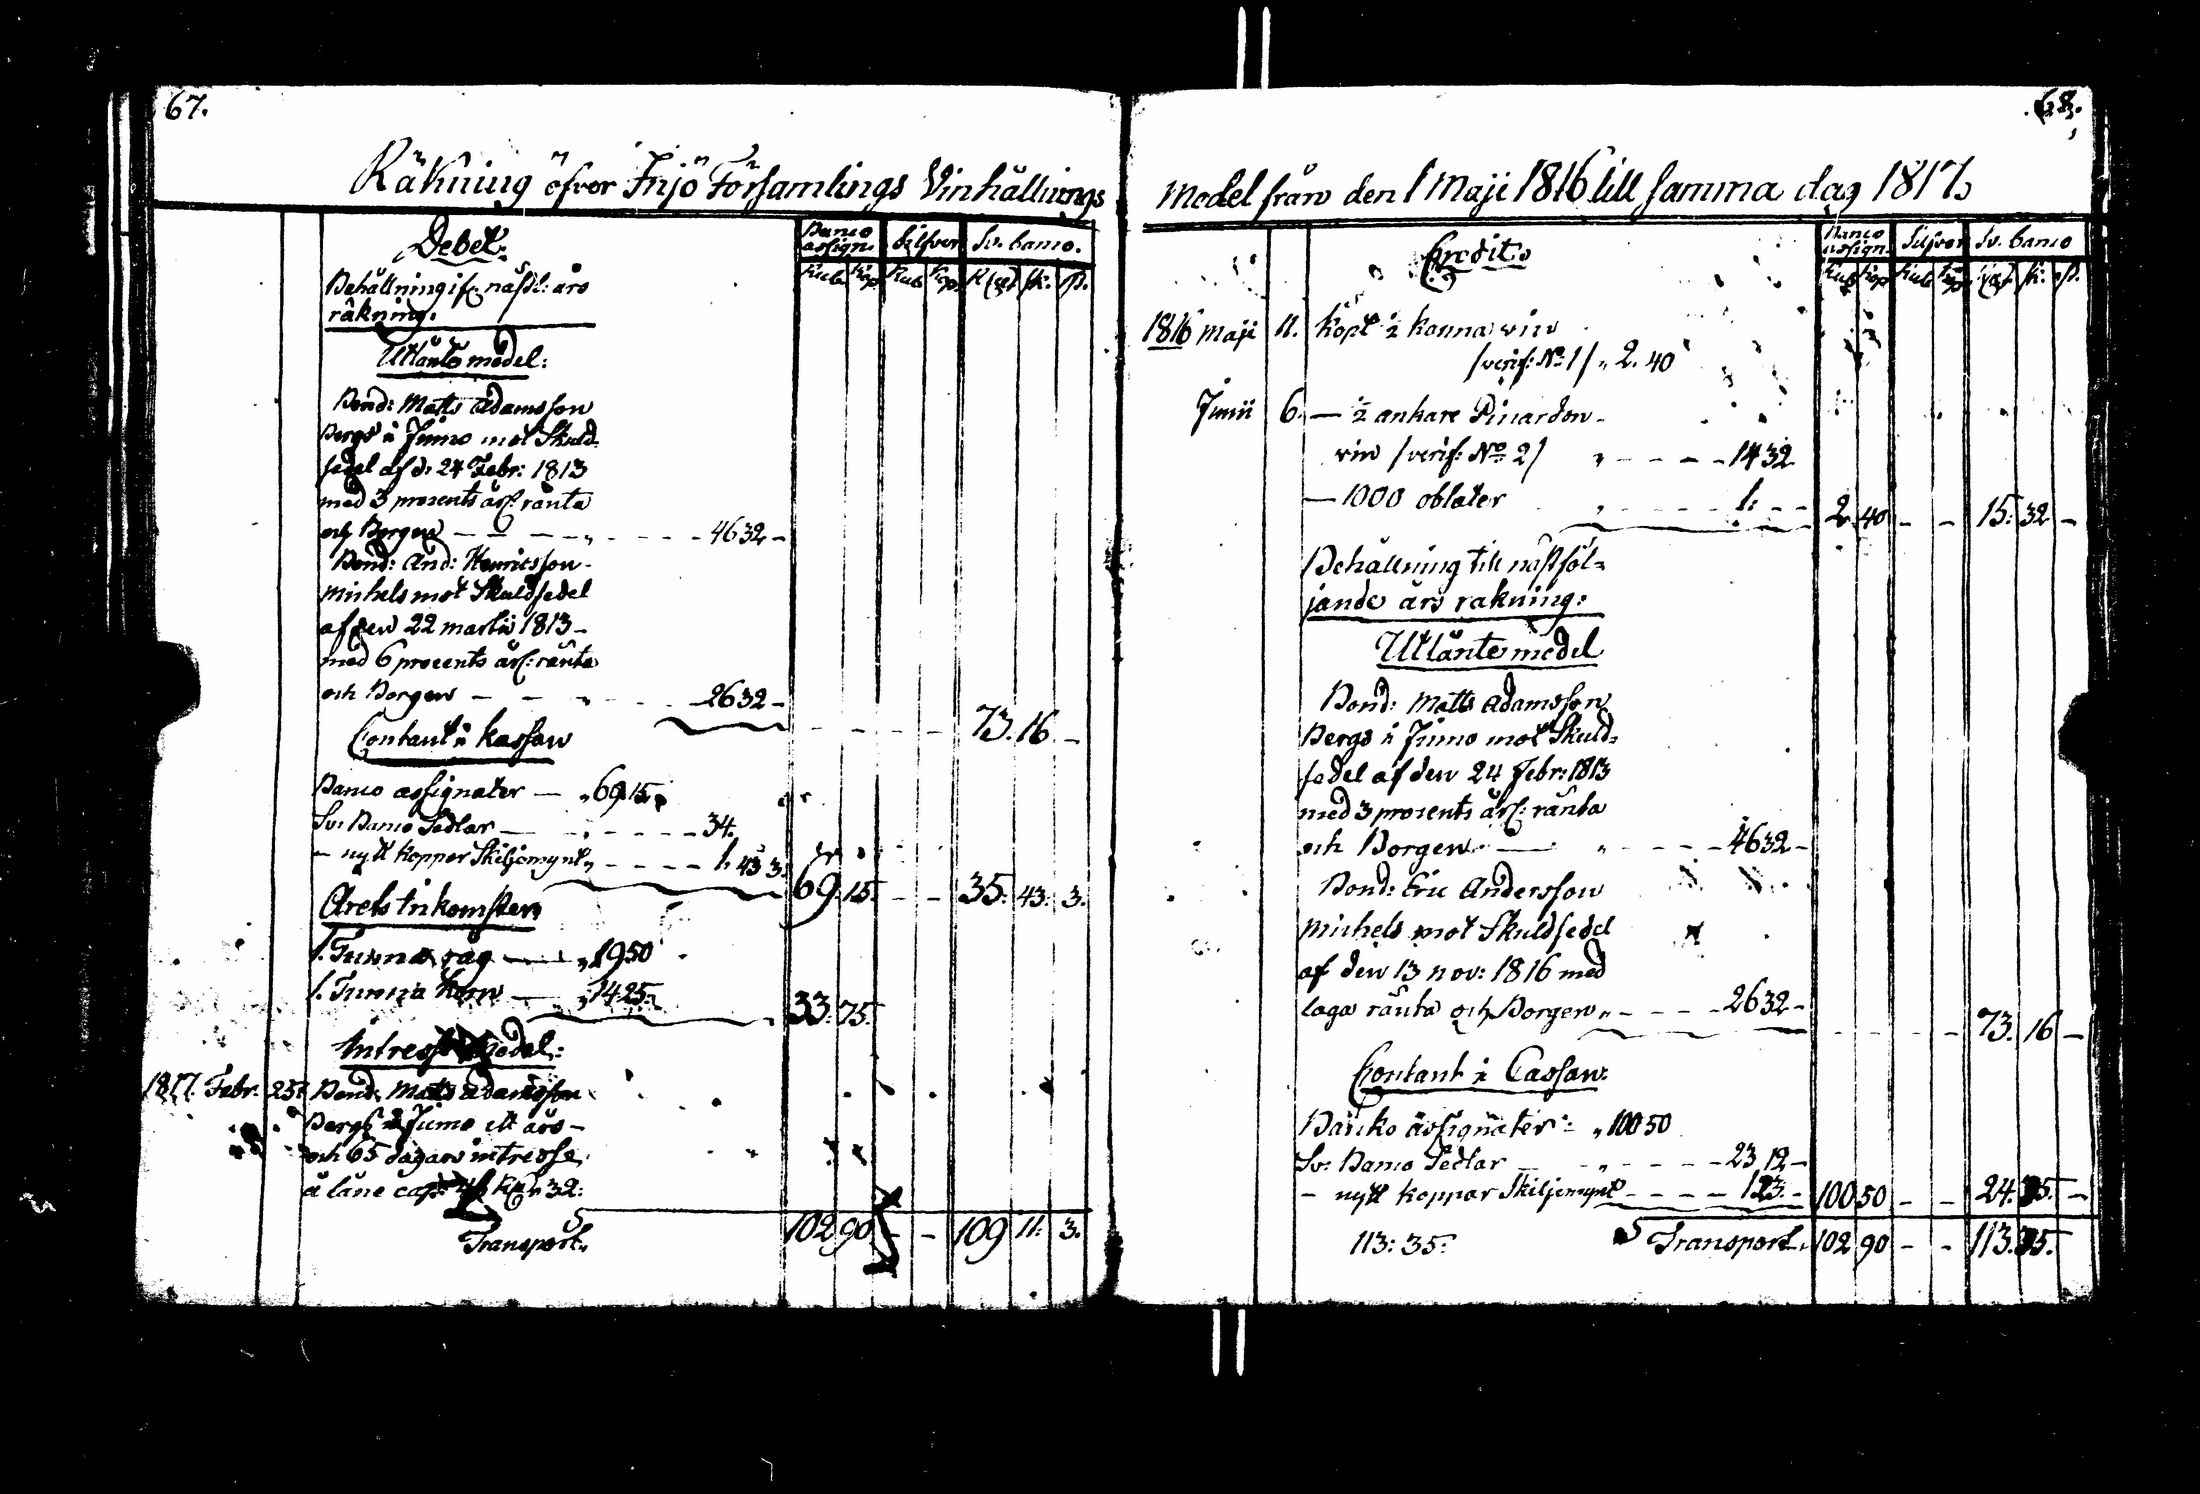 67.
Räkning öfver Injö Församlings Vinhållnings
Debet:
Banco assign: Silfver Sv. banco.
Rub Kop Rub Kop R(d) sk. rst.
Behållning if: näst: års
räkning.
Utlänte medel:
Bond: Matts Adamsson
Bergs i Jumo mot Skuld-
sedel af d: 24 Febr: 1813
med 3 procents årl: ränta
och Borgen — — — „ - - - - 46 32 -
Bond: And: Henricsson
Michels mot Skuldsedel
af den 22 martii 1813 -
med 6 procents årl: ränta
och Borgen — — „ - - - - 26 32 -
- - - - 73. 16. -
Contant i kassan
Banco assignater — „ 69 15.
Sv: Banco Sedlar — „ - - - - 34.
- nytt koppar Skiljemynt „ - - - - 1. 43 3.
69. 15. - - 35. 43. 3.
Årets Inkomsten
1. Tunna råg — „ 19 50
1. Tunna korn — „ 14 25.
33. 75.
Intresse Medel:
1817. Febr. 23. Bond: Matts Adamsson
Bergs i Jumo ett års -
och 65 dagars intresse
å låne cap: 46 R 32:
Transport. 102 90 - - 109 11: 3.
68.
Medel från den 1 Maji 1816 till samma dag 1817.
Credit.
Banco assign. Silfver Sv. banco
Rub Kop Rub Kop R(d) sk. rst.
1816 Maji 11. Köpt ½ kanna vin
/verif: No 1/ „ 2. 40
Junii 6. — ½ ankare Pinardon
vin /verif: No 2/ „ - - - - 14 32
— 1000 oblater „ - - - - 1. - -
2 40 - - 15. 32 -
Behållning till nästföl-
jande års räkning:
Utlänte medel
Bond: Matts Adamsson
Bergs i Jumo mot Skuld-
sedel af den 24 Febr: 1813
med 3 procents årl: ränta
och Borgen. — „ - - - - 46 32 -
Bond: Eric Andersson
Michels mot Skuldsedel
af den 13 nov: 1816 med
laga ränta och Borgen „ - - - - 26 32 -
- - - - 73. 16 -
Contant i Cassan:
Banko assignater - „ 100 50
Sv: Banco Sedlar — „ - - - - 23 12 -
- nytt koppar Skiljemynt - - - - 1 23. - 100 50 - - 24. 35. -
113: 35. Transport. 102 90 - - 113. 35.